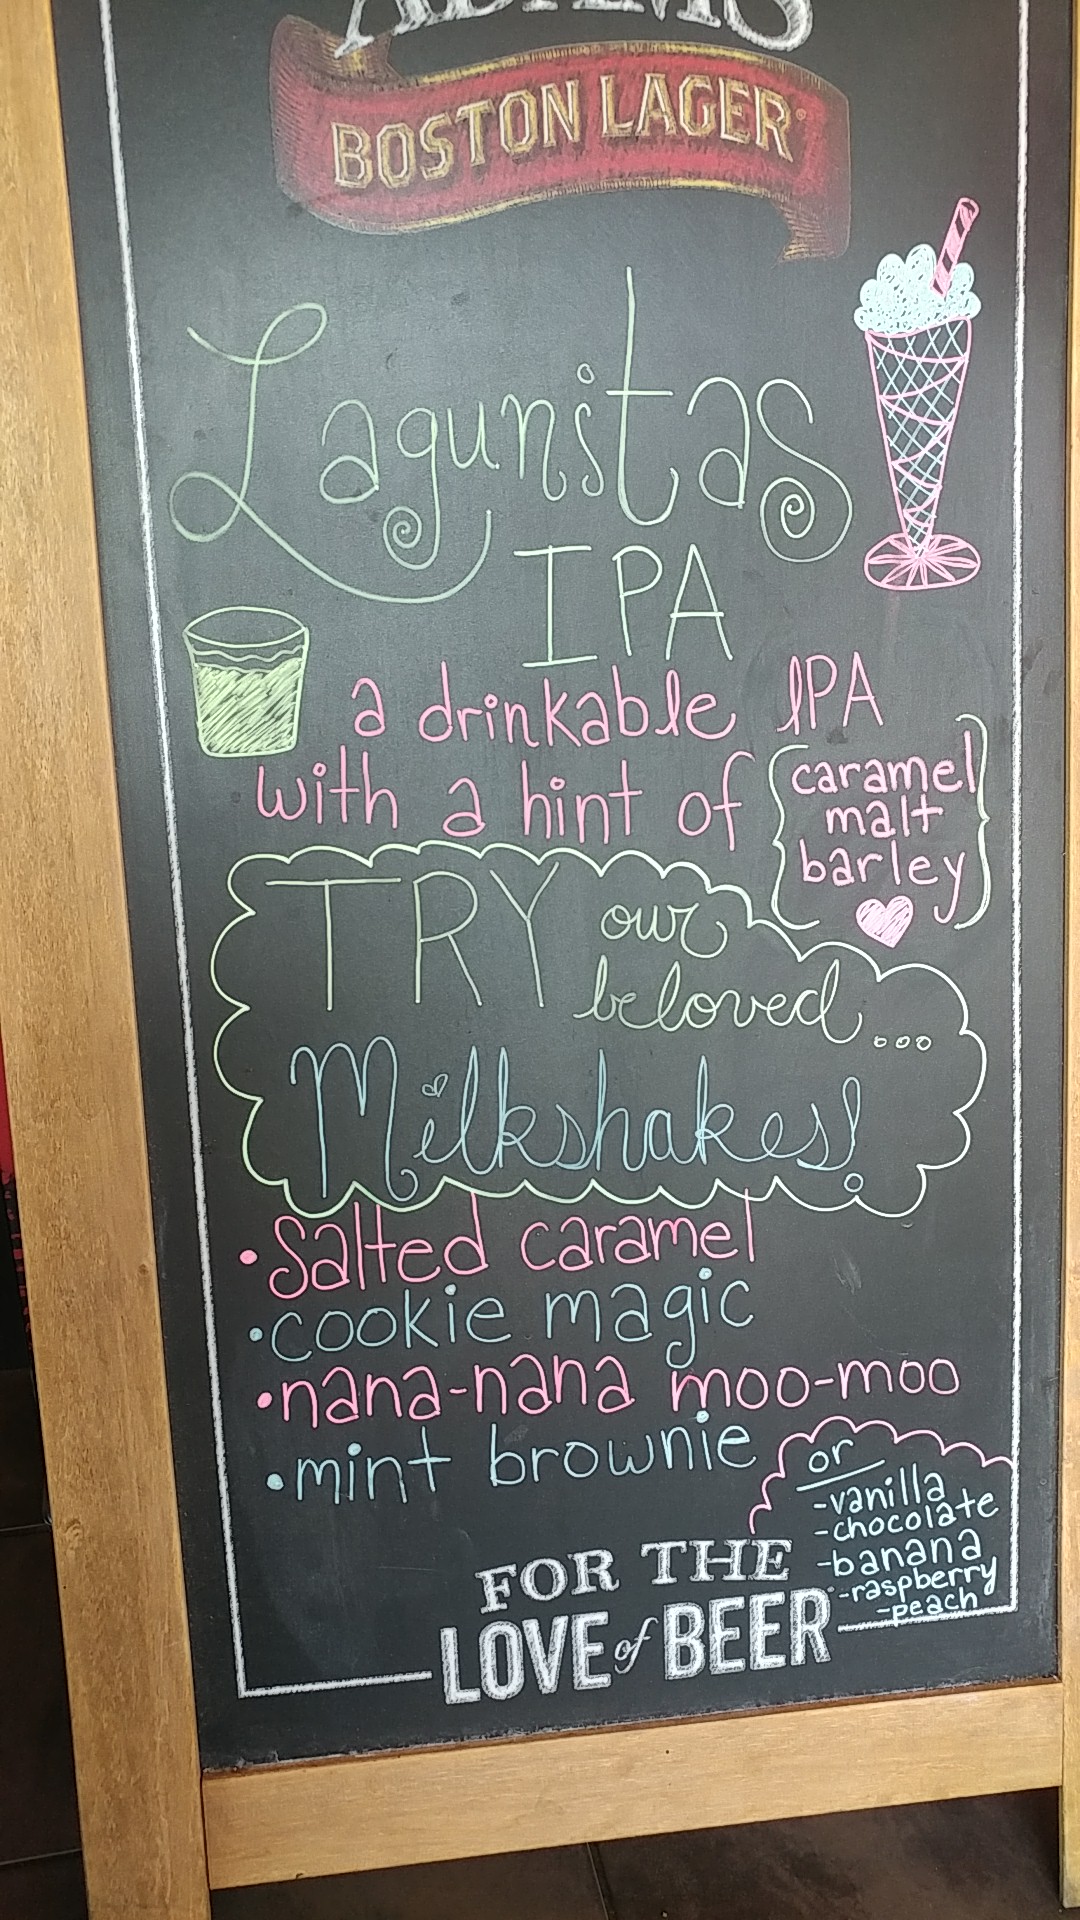 ADAMS
BOSTON LAGER®
Lagunitas
IPA
a drinkable IPA
with a hint of
caramel
malt
barley
TRY our
beloved...
Milkshakes!
• Salted caramel
• cookie magic
• nana-nana moo-moo
• mint brownie
or
-vanilla
-chocolate
-banana
-raspberry
-peach
FOR THE
LOVE of BEER